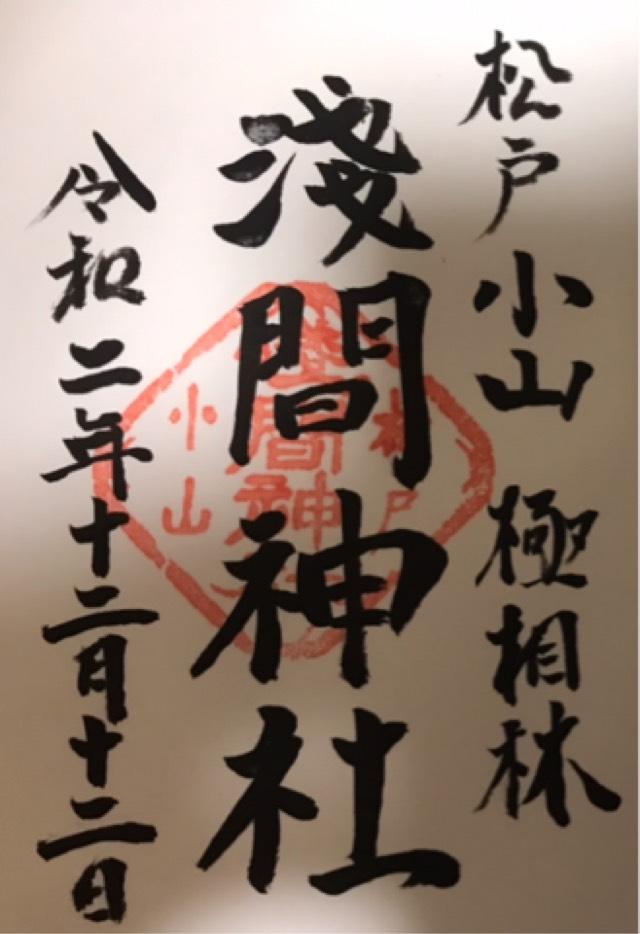 松戸小山 極相林
淺間神社
令和二年十二月十二日
松戸
淺間神社
小山